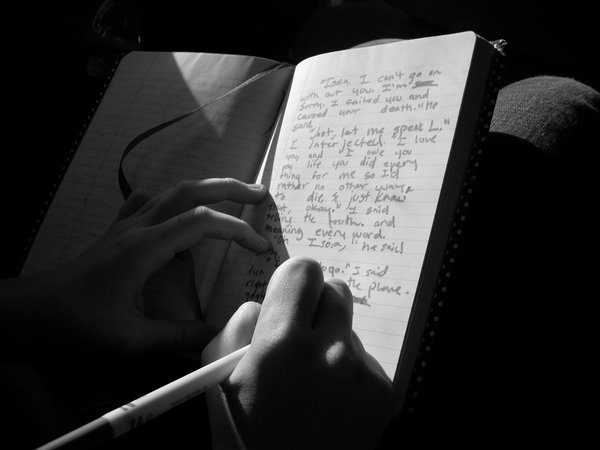 "Isoia, I can't go on
with out you. I'm
sorry. I failed you and
caused your death." He
said.
"Just, let me speak L."
I interjected. I love
you, and I owe you
my life you did every
thing for me so I'd
rather no other way
to die, & just know
that, okay." I said
telling the truth. and
meaning every word.
"Oh Isoia," he said
go." I said
right the plane.